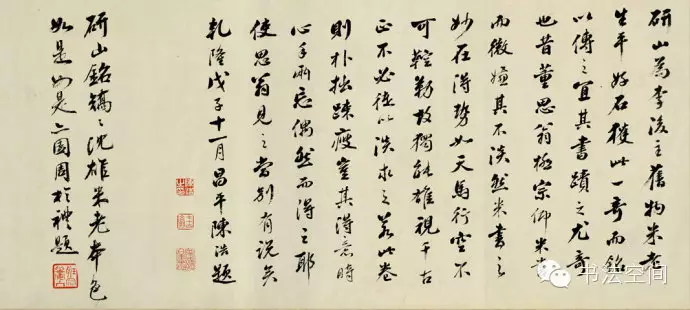 研山為李後主舊物米老
生平好石獲此一奇而銘
以傳之宜其書蹟之尤奇
也昔董思翁極宗仰米書
而微嫌其不淡然米書之
妙在得勢如天馬行空不
可鞚勒故獨能雄視千古
正不必徒以淡求之若此卷
則朴拙疎瘦豈其得意時
心手兩忘偶然而得之耶
使思翁見之當別有說矣
乾隆戊子十一月昌平陳浩題
研山銘鎬々沈雄米老本色
如是如是亦園周於禮題
书法空间